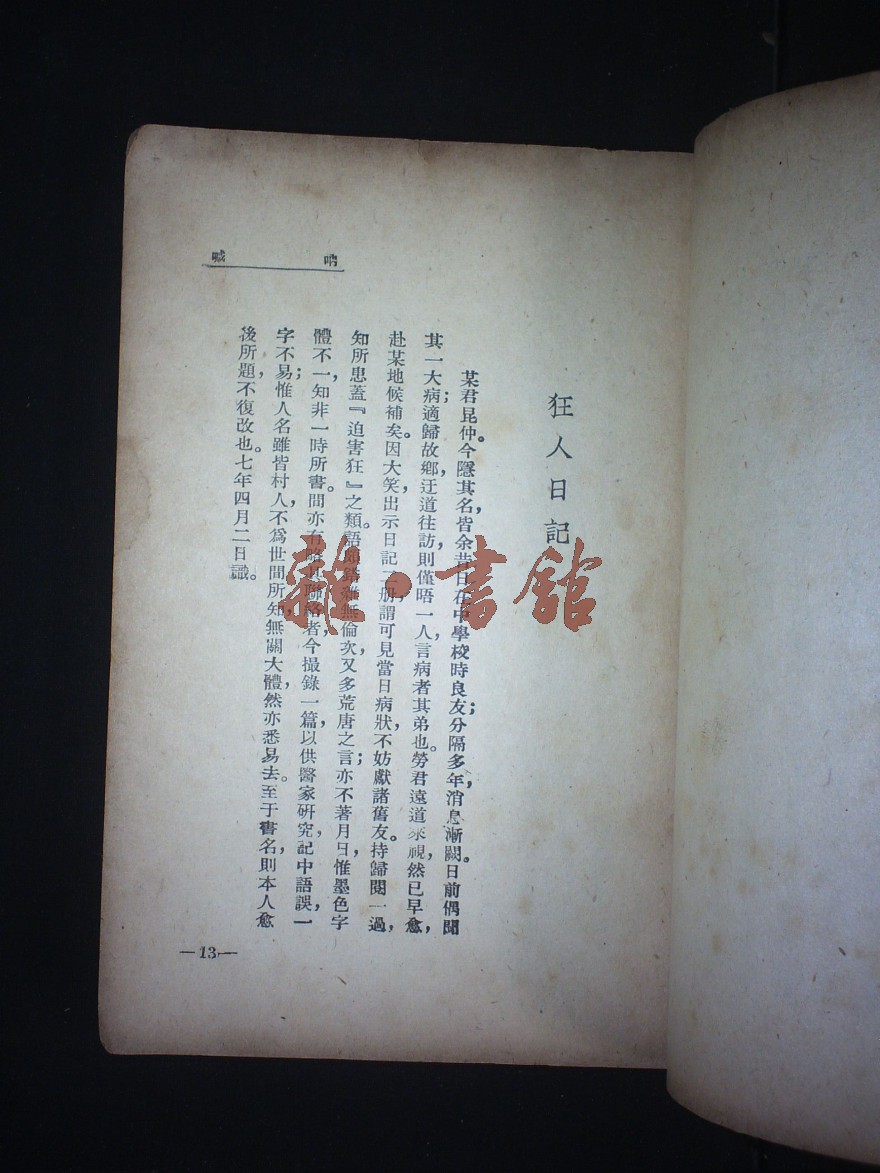 吶喊
狂人日記
某君昆仲。今隱其名，皆余昔日在中學校時良友；分隔多年，消息漸闕。日前偶聞
其一大病；適歸故鄉，迂道往訪，則僅晤一人，言病者其弟也。勞君遠道來視，然已早愈，
赴某地候補矣。因大笑，出示日記二册，謂可見當日病狀，不妨獻諸舊友。持歸閱一過，
知所患蓋『迫害狂』之類。語頗錯雜無倫次，又多荒唐之言；亦不著月日，惟墨色字
體不一，知非一時所書。間亦有略具聯絡者，今撮錄一篇，以供醫家研究。記中語誤，一
字不易；惟人名雖皆村人，不爲世間所知，無關大體，然亦悉易去。至于書名，則本人愈
後所題，不復改也。七年四月二日識。
—13—
雜·書館